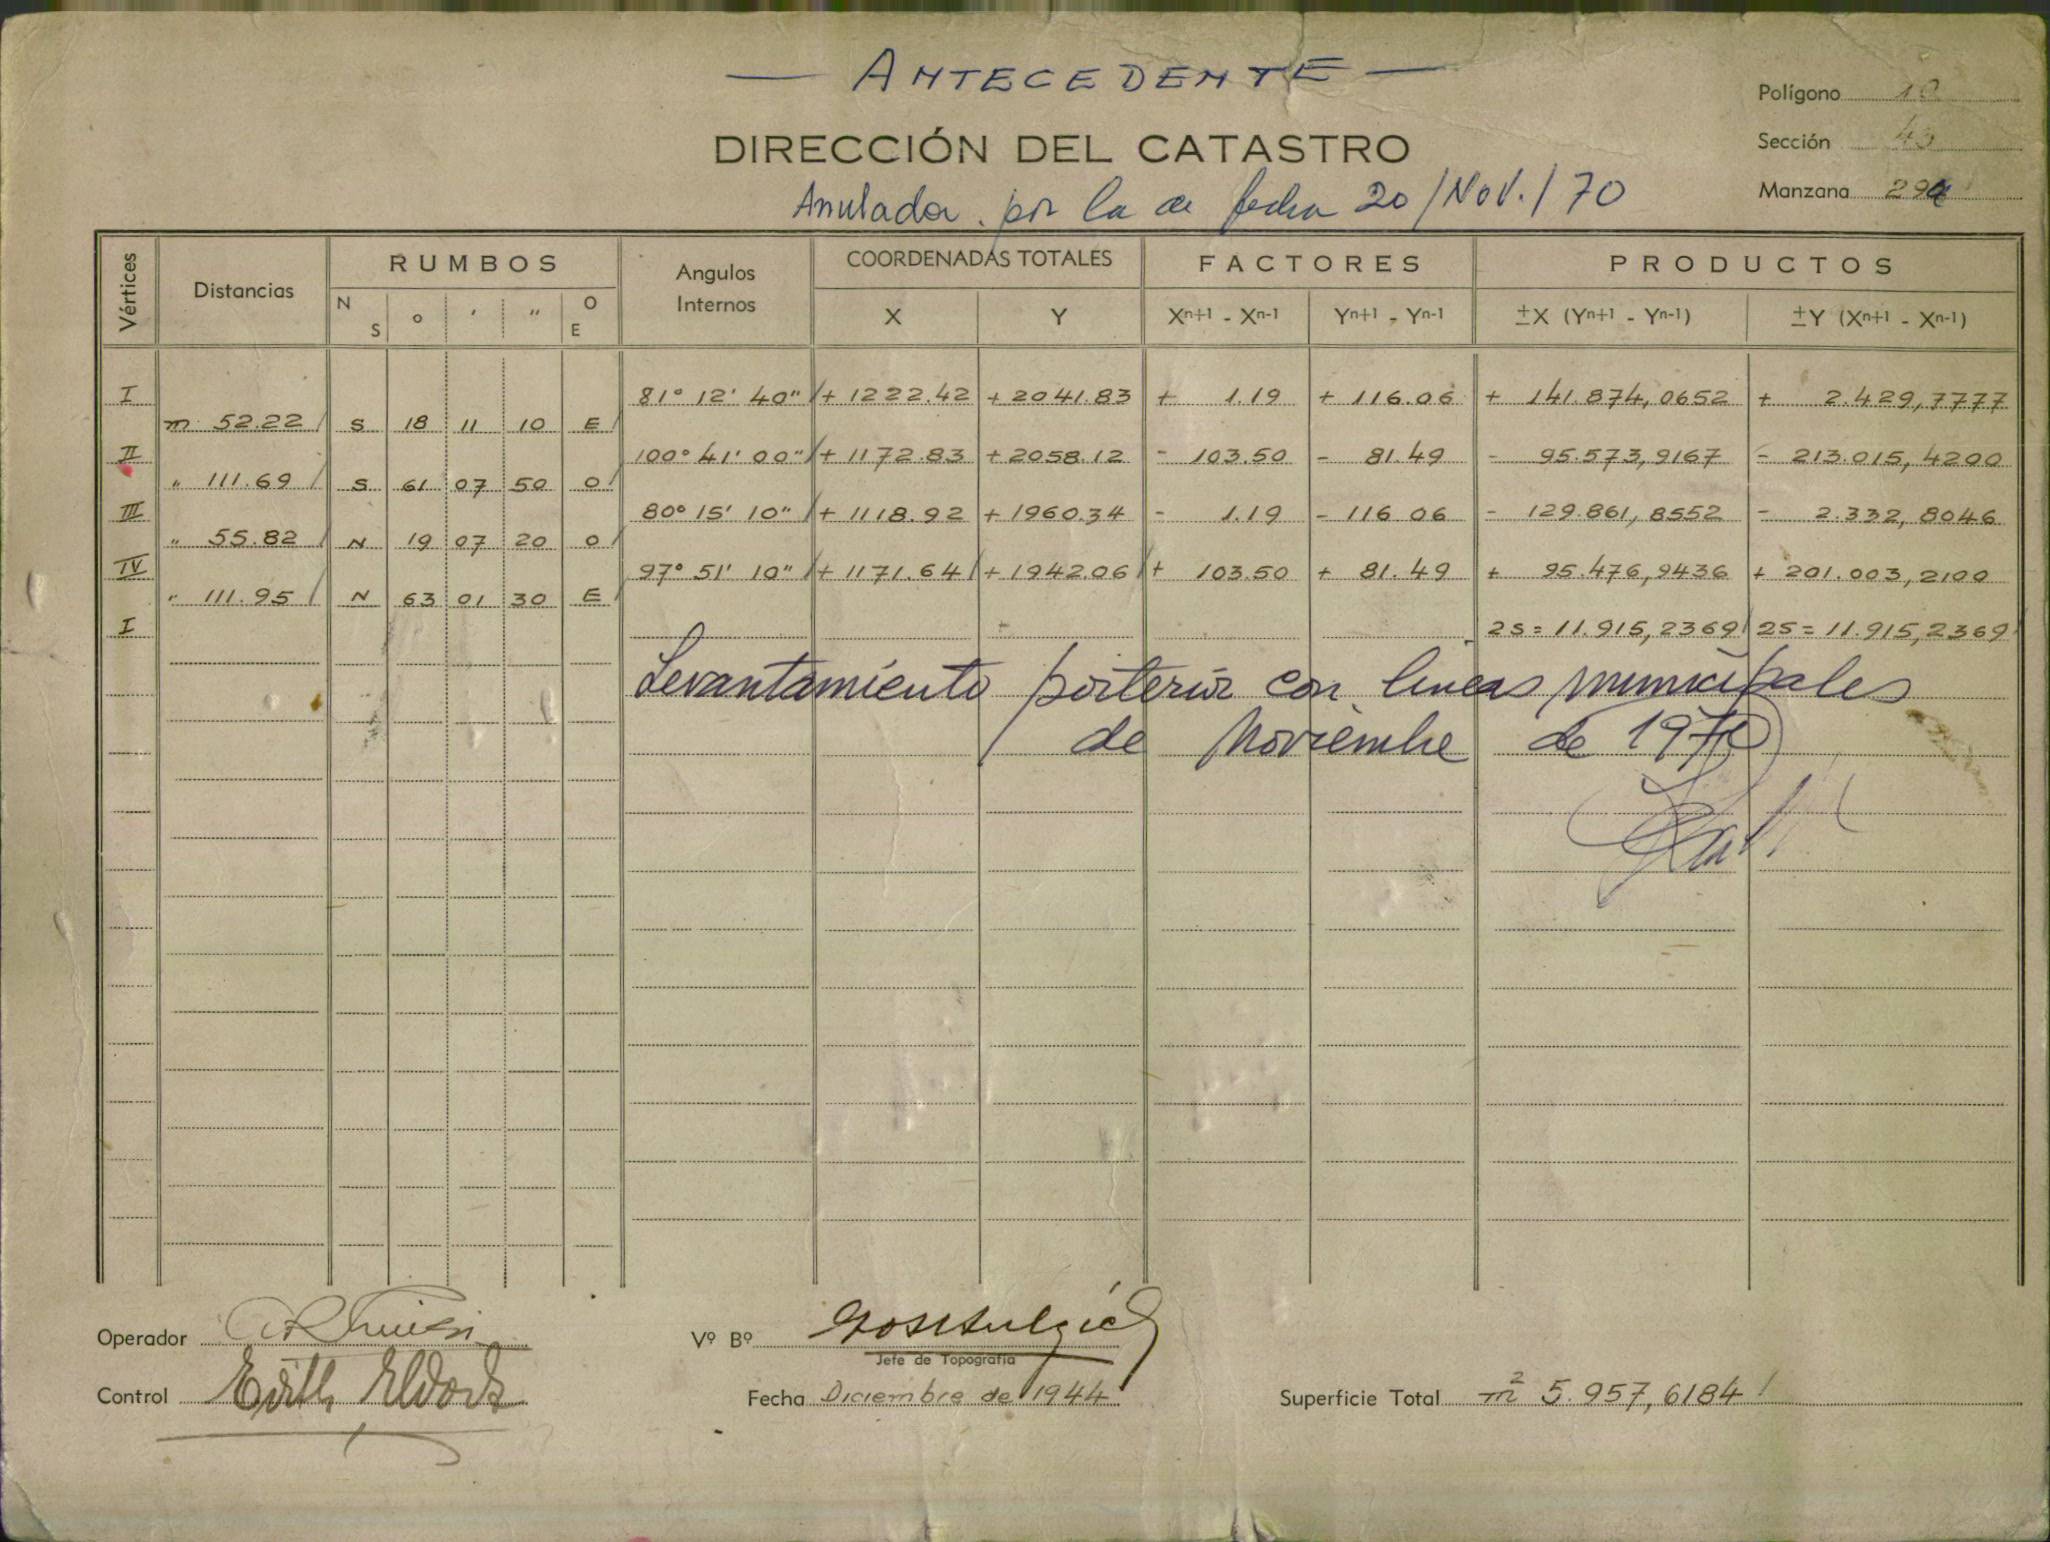 — ANTECEDENTE —
DIRECCIÓN DEL CATASTRO
Anulada por la de fecha 20/Nov./70
Polígono 10
Sección 43
Manzana 29a
Vértices Distancias RUMBOS Angulos Internos COORDENADAS TOTALES FACTORES PRODUCTOS
N S ° ' " O E X Y Xn+1 - Xn-1 Yn+1 - Yn-1 ±X (Yn+1 - Yn-1) ±Y (Xn+1 - Xn-1)
I 81° 12' 40" + 1222.42 + 2041.83 + 1.19 + 116.06 + 141.874,0652 + 2.429,7777
m 52.22 S 18 11 10 E
II 100° 41' 00" + 1172.83 + 2058.12 - 103.50 - 81.49 - 95.573,9167 - 213.015,4200
" 111.69 S 61 07 50 O
III 80° 15' 10" + 1118.92 + 1960.34 - 1.19 - 116.06 - 129.861,8552 - 2.332,8046
" 55.82 N 19 07 20 O
IV 97° 51' 10" + 1171.64 + 1942.06 + 103.50 + 81.49 + 95.476,9436 + 201.003,2100
" 111.95 N 63 01 30 E
I 2S = 11.915,2369 2S = 11.915,2369
Levantamiento posterior con lineas municipales
de Noviembre de 1970
Operador
Vº Bº
Jefe de Topografía
Control Edith
Fecha Diciembre de 1944
Superficie Total m2 5.957,6184